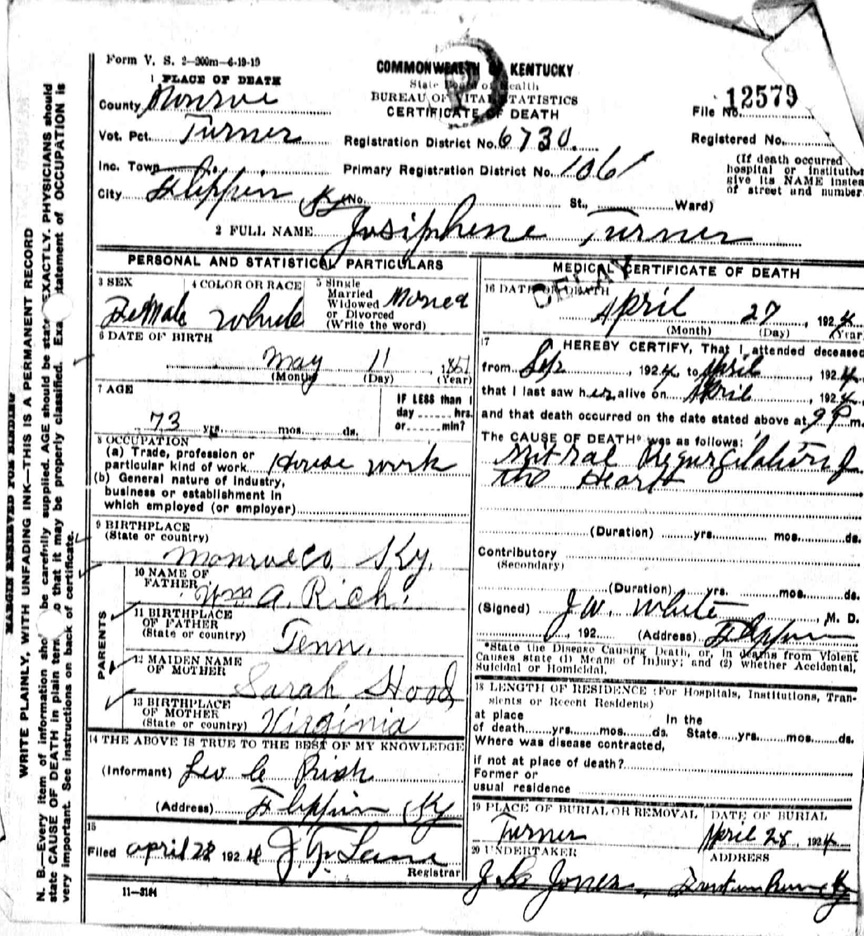 Form V. S. 2—300m—6-19-19
COMMONWEALTH OF KENTUCKY
State Board of Health
BUREAU OF VITAL STATISTICS
CERTIFICATE OF DEATH
1 PLACE OF DEATH
County Monroe
File No. 12579
Vot. Pct. Turner
Registration District No. 6730
Registered No.
Inc. Town
Primary Registration District No. 1061
(If death occurred
hospital or institution
give its NAME instead
of street and number
City Flippin Ky (No. St., Ward)
2 FULL NAME Josiphene Turner
PERSONAL AND STATISTICAL PARTICULARS
3 SEX Female
4 COLOR OR RACE White
5 Single
Married
Widowed
or Divorced
(Write the word)
6 DATE OF BIRTH
May 11
(Month) (Day) (Year)
7 AGE
73 yrs. mos. ds.
IF LESS than 1
day hrs.
or min?
8 OCCUPATION
(a) Trade, profession or
particular kind of work House work
(b) General nature of industry,
business or establishment in
which employed (or employer)
9 BIRTHPLACE
(State or country)
Monroe co. Ky.
PARENTS
10 NAME OF
FATHER Wm A. Rich.
11 BIRTHPLACE
OF FATHER
(State or country) Tenn.
12 MAIDEN NAME
OF MOTHER Sarah Hood
13 BIRTHPLACE
OF MOTHER
(State or country) Virginia
14 THE ABOVE IS TRUE TO THE BEST OF MY KNOWLEDGE
(Informant) Leo C Rich
(Address) Flippin Ky
15
Filed April 28 1924 J. F. Lane
Registrar
11—3184
MEDICAL CERTIFICATE OF DEATH
DELAY
16 DATE OF DEATH
April 27, 1924
(Month) (Day) (Year)
17 I HEREBY CERTIFY, That I attended deceased
from Sep, 1924 to April 1924
that I last saw her alive on April 1924
and that death occurred on the date stated above at 9 P m.
The CAUSE OF DEATH* was as follows:
Mitral Regurgitation of
the Heart
(Duration) yrs. mos. ds.
Contributory
(Secondary)
(Duration) yrs. mos. ds.
(Signed) J.W. White, M. D.
, 192 (Address) Flippin
*State the Disease Causing Death, or, in deaths from Violent
Causes state (1) Means of Injury; and (2) whether Accidental,
Suicidal or Homicidal.
18 LENGTH OF RESIDENCE (For Hospitals, Institutions, Tran-
sients or Recent Residents)
at place In the
of death yrs. mos. ds. State yrs. mos. ds.
Where was disease contracted,
if not at place of death?
Former or
usual residence
19 PLACE OF BURIAL OR REMOVAL
Turner
DATE OF BURIAL
April 28, 1924
20 UNDERTAKER
ADDRESS
Jones
MARGIN RESERVED FOR BINDING
WRITE PLAINLY, WITH UNFADING INK—THIS IS A PERMANENT RECORD
N. B.—Every item of information should be carefully supplied. AGE should be stated EXACTLY. PHYSICIANS should
state CAUSE OF DEATH in plain terms, so that it may be properly classified. Exact statement of OCCUPATION is
very important. See instructions on back of certificate.